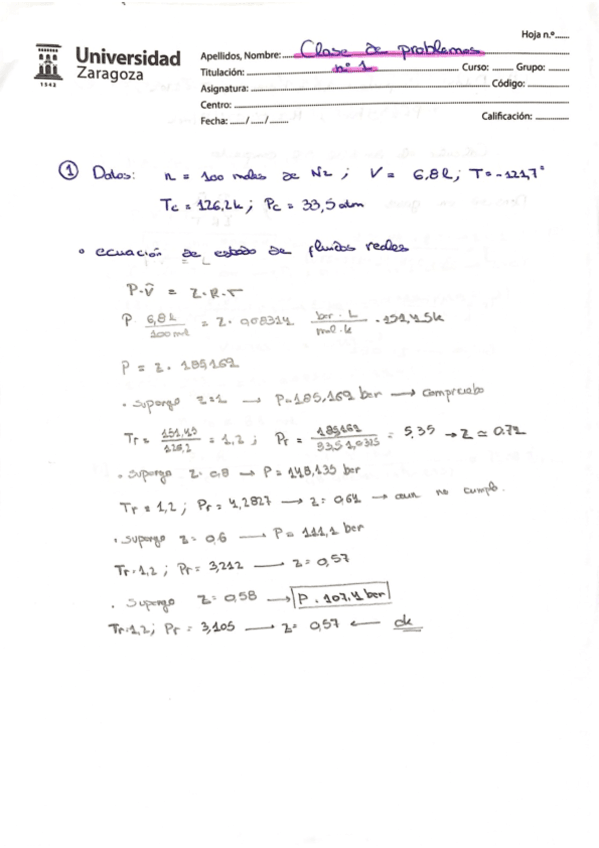 Hoja n.º......
Universidad
Zaragoza
1542
Apellidos, Nombre: Clase de problemas
Titulación: nº 1 Curso: Grupo:
Asignatura: Código:
Centro:
Fecha: ...../...../....... Calificación:
① Datos: n = 100 moles de N2 ; V = 6,8 l ; T = -121,7°
Tc = 126,2 k ; Pc = 33,5 atm
• ecuación de estado de fluidos reales
P·Ṽ = Z·R·T
P · 6,8 l / 100 mol = Z · 0,08314 bar·L / mol·k · 151,45k
P = Z · 185,162
• Supongo Z=1 → P=185,162 bar → compruebo
Tr = 151,45 / 126,2 = 1,2 ; Pr = 185,162 / 33,5·1,01325 = 5,35 → Z ≃ 0.72
• Supongo Z=0,8 → P = 148,135 bar
Tr = 1,2 ; Pr = 4,2827 → Z= 0,64 → aun no cumple.
• Supongo Z= 0,6 → P = 111,1 bar
Tr=1,2 ; Pr = 3,212 → Z = 0,57
• Supongo Z= 0,58 → P = 107,4 bar
Tr=1,2; Pr = 3,105 → Z= 0,57 ← ok